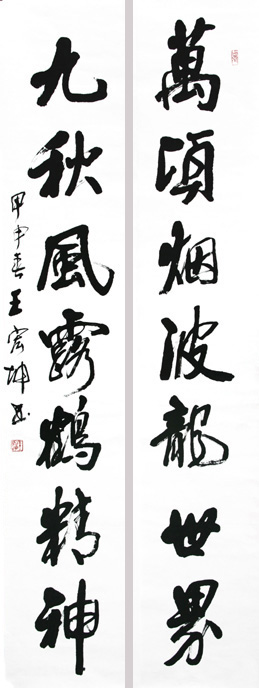 萬頃烟波龍世界
九秋風露鶴精神
甲申春王宏坤书